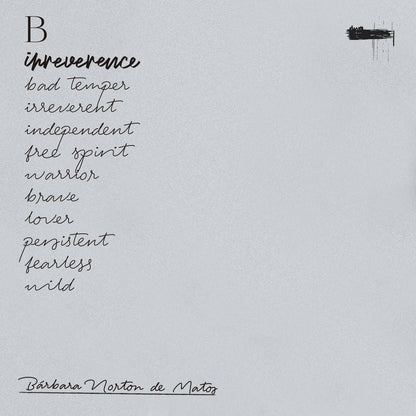 B
irreverence
bad temper
irreverent
independent
free spirit
warrior
brave
lover
persistent
fearless
wild
Bárbara Norton de Matos